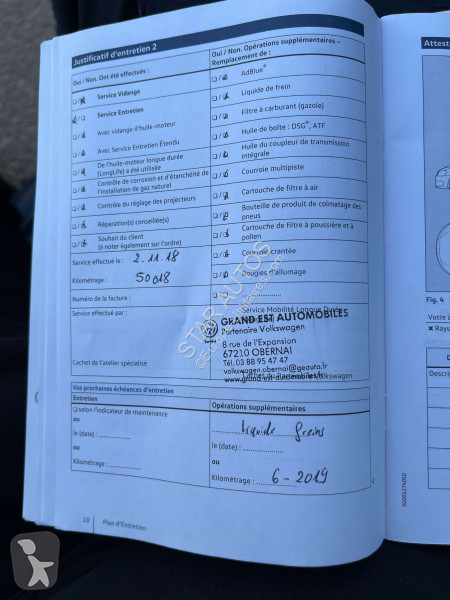 Justificatif d'entretien 2
Oui / Non. Ont été effectués :
Service Vidange
Service Entretien
Avec vidange d'huile-moteur
Avec Service Entretien Étendu
De l'huile-moteur longue durée
(LongLife) a été utilisée
Contrôle de corrosion et d'étanchéité de
l'installation de gaz naturel
Contrôle du réglage des projecteurs
Réparation(s) conseillée(s)
Souhait du client
(à noter également sur l'ordre)
Service effectué le : 2.11.18
Kilométrage : 50018
Numéro de la facture :
Service effectué par :
Cachet de l'atelier spécialisé
Oui / Non. Opérations supplémentaires –
Remplacement de :
AdBlue®
Liquide de frein
Filtre à carburant (gazole)
Huile de boîte : DSG®, ATF
Huile du coupleur de transmission
intégrale
Courroie multipiste
Cartouche de filtre à air
Bouteille de produit de colmatage des
pneus
Cartouche de filtre à poussière et à
pollen
Courroie crantée
Bougies d'allumage
Service Mobilité Longue Durée
GRAND EST AUTOMOBILES
Partenaire Volkswagen
8 rue de l'Expansion
67210 OBERNAI
Tél. 03 88 95 47 47
volkswagen.obernai@geauto.fr
www.grand-est-automobiles.fr
STAR AUTOS
Vos prochaines échéances d'entretien
Entretien
selon l'indicateur de maintenance
ou
le (date) :
ou
Kilométrage :
Opérations supplémentaires
Liquide freins
le (date) :
ou
Kilométrage : 6-2019
18 | Plan d'Entretien
Attesta
Fig. 4
Votre
Rayu
D
Descri